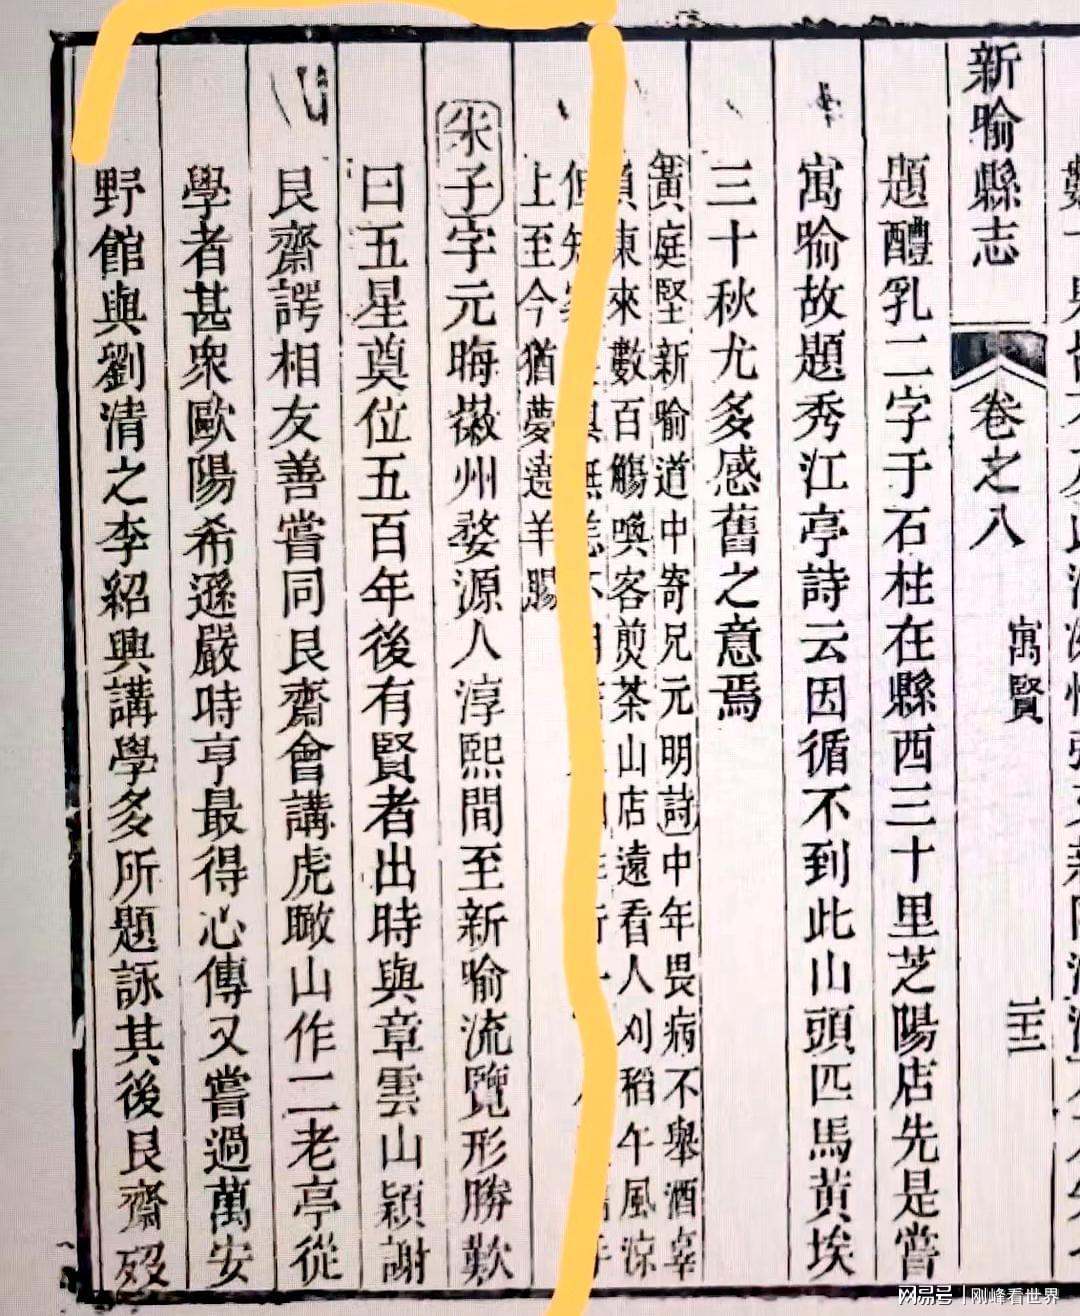 新喻縣志
卷之八
寓賢
三十二
題醴乳二字于石柱在縣西三十里芝陽店先是嘗
寓喻故題秀江亭詩云因循不到此山頭匹馬黄埃
三十秋尤多感舊之意焉
黃庭堅新喻道中寄兄元明詩中年畏病不舉酒辜
負東來數百觴喚客煎茶山店遠看人刈稻午風涼
但知
上至今猶夢遶羊腸
朱子字元晦徽州婺源人淳熙間至新喻流覽形勝歎
曰五星奠位五百年後有賢者出時與章雲山穎謝
艮齋諤相友善嘗同艮齋會講虎瞰山作二老亭從
學者甚衆歐陽希遜嚴時亨最得心傳又嘗過萬安
野館與劉清之李紹興講學多所題詠其後艮齋歿
网易号 | 刚峰看世界